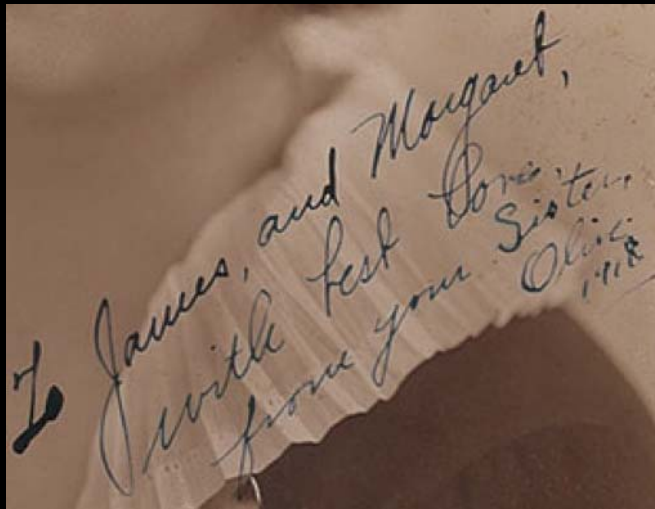 To James, and Margaret,
with best love,
from your Sister,
Olive.
1918